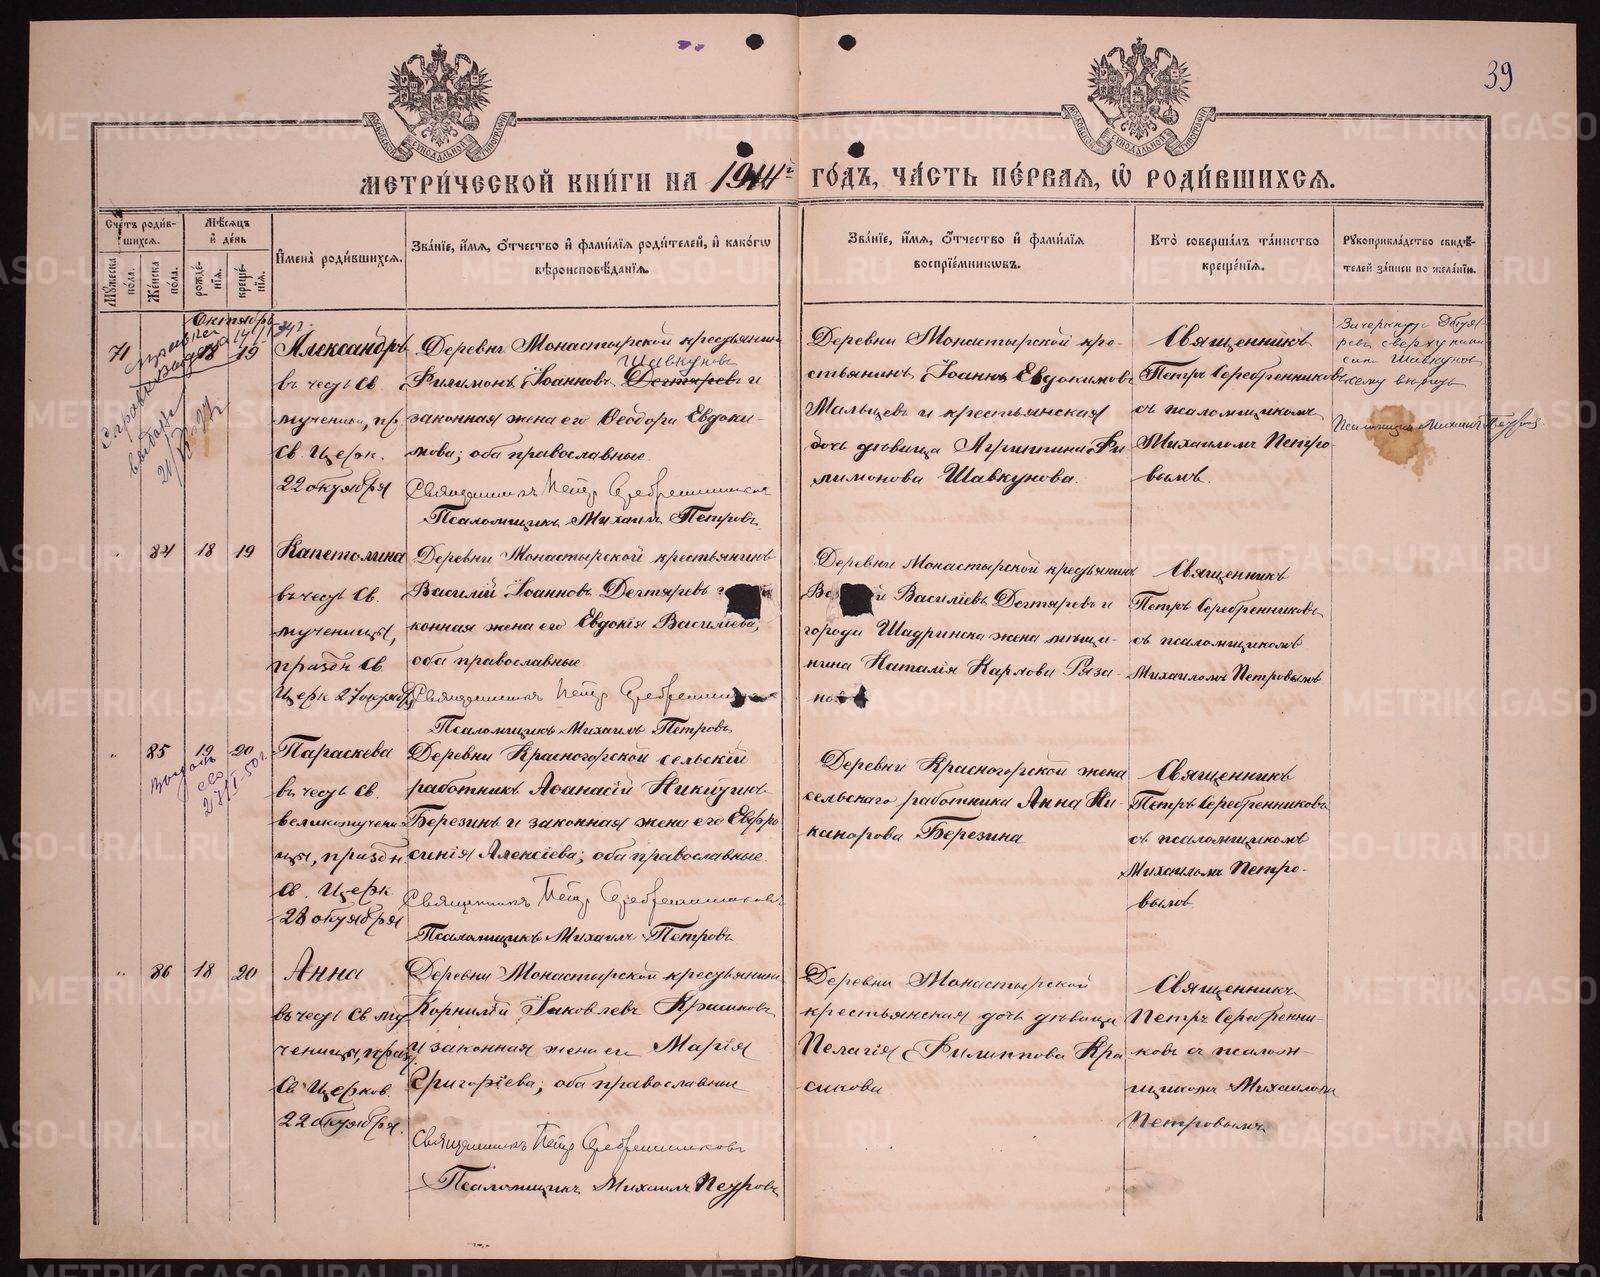 39
МЕТРИ́ЧЕСКОЙ КНИ́ГИ НА 1914й ГО́ДЪ, ЧА́СТЬ ПЕ́РВАЯ, Ѡ҆ РОДИ́ВШИХСЯ.
Сче́тъ роди́в-
шихся.
Мꙋжеска по́ла.
Же́нска по́ла.
Мѣ́сяцъ
и҆ де́нь
рожде́-
нїя.
креще́-
нїя.
И҆мена̀ роди́вшихся.
Зва́нїе, и҆́мя, ѻ҆́тчество и҆ фами́лїя роди́телей, и҆ како́гѡ
вѣроисповѣ́данїя.
Зва́нїе, и҆́мя, ѻ҆́тчество и҆ фами́лїя
воспрїе́мникѡвъ.
Кто̀ соверша́лъ та́инство
креще́нїя.
Рꙋкоприкла́дство свидѣ́-
телей за́писи по жела́нїю.
Октябрь
71 18 19
Александръ
въ честь св.
мученика, пр.
св. церк.
22 октября
Деревни Монастырской крестьянинъ
Шавкуновъ
Филимонъ Іоанновъ Дегтяревъ и
законная жена его Ѳеодора Евдоки-
мова; оба православные.
Священникъ Петр Серебренников
Псаломщикъ Михаилъ Петровъ
Деревни Монастырской кре-
стьянинъ Іоаннъ Евдокимовъ
Мальцевъ и крестьянская
дочь дѣвица Агриппина Фи-
лимонова Шавкунова.
Священникъ
Петръ Серебренниковъ
съ псаломщикомъ
Михаиломъ Петро-
вымъ.
Псаломщик Михаил Петров
84 18 19
Капетолина
въ честь св.
мученицы,
праздн. св.
церк. 27 октября
Деревни Монастырской крестьянинъ
Василій Іоанновъ Дегтяревъ
конная жена его Евдокія Василіева;
оба православные
Священникъ Петр Серебренников
Псаломщикъ Михаилъ Петровъ
Деревни Монастырской крестьянинъ
Василіевъ Дегтяревъ и
города Шадринска жена мѣща-
нина Наталія Карлова Ряза-
нова
Священникъ
Петръ Серебренниковъ
съ псаломщикомъ
Михаиломъ Петровымъ
85 19 20
27/I-50г.
Параскева
въ честь св.
великомучени-
цы, праздн.
св. церк
28 октября
Деревни Красногорской сельскій
работникъ Аѳанасій Никитинъ
Березинъ и законная жена его Евфро-
синія Алексіева; оба православные.
Священникъ Петр Серебренниковъ
Псаломщикъ Михаилъ Петровъ
Деревни Красногорской жена
сельскаго работника Анна Ни-
канорова Березина
Священникъ
Петръ Серебренниковъ
съ псаломщикомъ
Михаиломъ Петро-
вымъ
86 18 20
Анна
въ честь св. му-
ченицы, празд.
св. церков.
22 октября.
Деревни Монастырской крестьянинъ
Корнилій Іаковлевъ Крашковъ
и законная жена его Марія
Григоріева; оба православные
Священникъ Петр Серебренниковъ
Псаломщикъ Михаилъ Петровъ
Деревни Монастырской
крестьянская дочь дѣвица
Пелагія Филиппова Кра-
сикова
Священникъ
Петръ Серебренни-
ковъ съ псалом-
щикомъ Михаиломъ
Петровымъ
METRIKI.GASO-URAL.RU